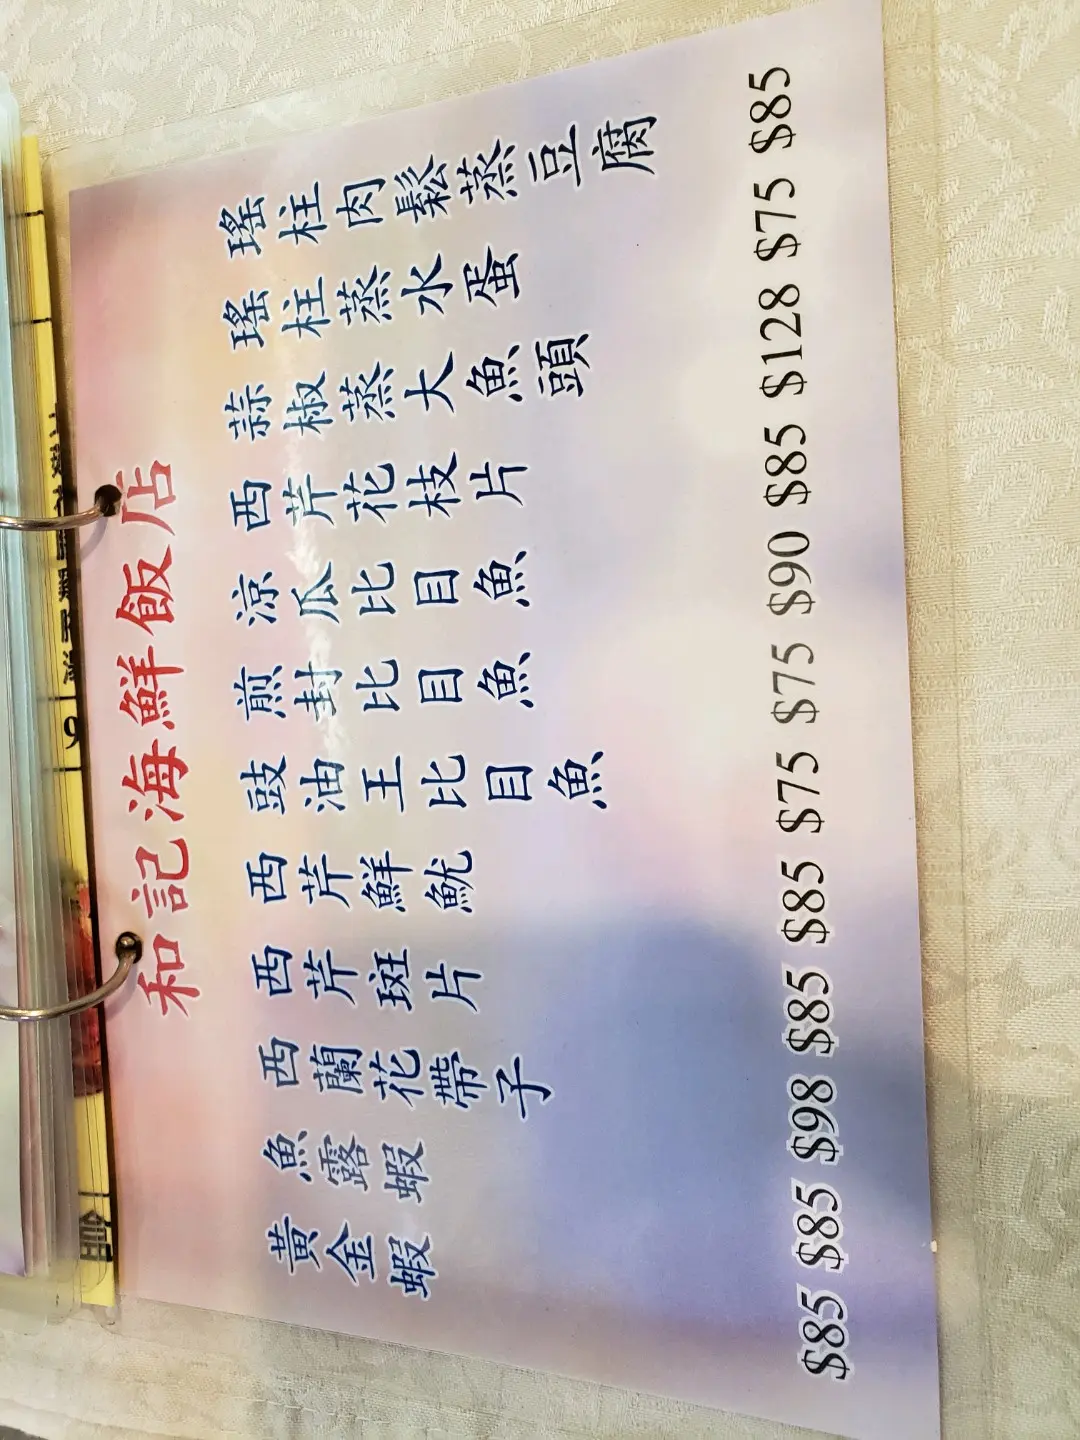 和記海鮮飯店
瑤柱肉鬆蒸豆腐
瑤柱蒸水蛋
蒜椒蒸大魚頭
西芹花枝片
涼瓜比目魚
煎封比目魚
豉油王比目魚
西芹鮮魷
西芹斑片
西蘭花帶子
魚露蝦
黃金蝦
$85 $85 $98 $85 $85 $75 $75 $90 $85 $128 $75 $85